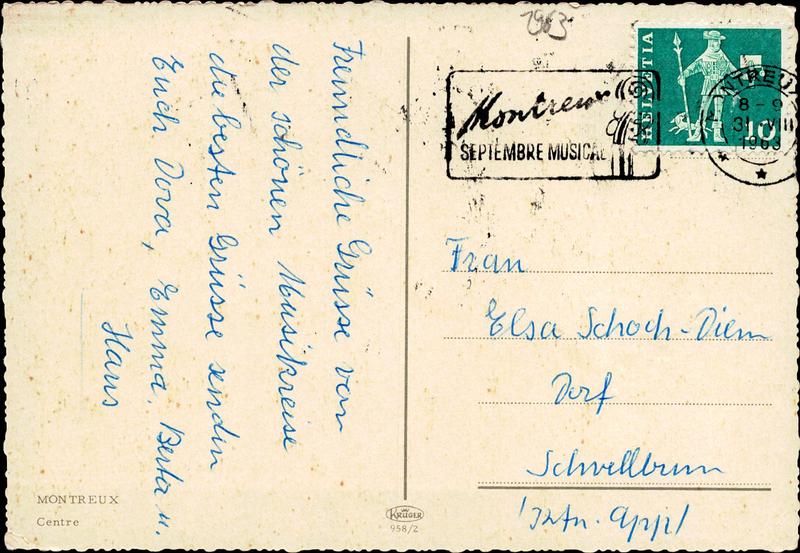 1963
HELVETIA
10
Montreux
SEPTEMBRE MUSICAL
MONTREUX
8-9
31.VIII
1963
Freundliche Grüsse von
der schönen Musikreise
die besten Grüsse senden
Euch Dora, Emma, Berta u.
Hans
Frau
Elsa Schoch-Diem
Dorf
Schwellbrunn
Ktn. Appl
MONTREUX
Centre
KRÜGER
958/2